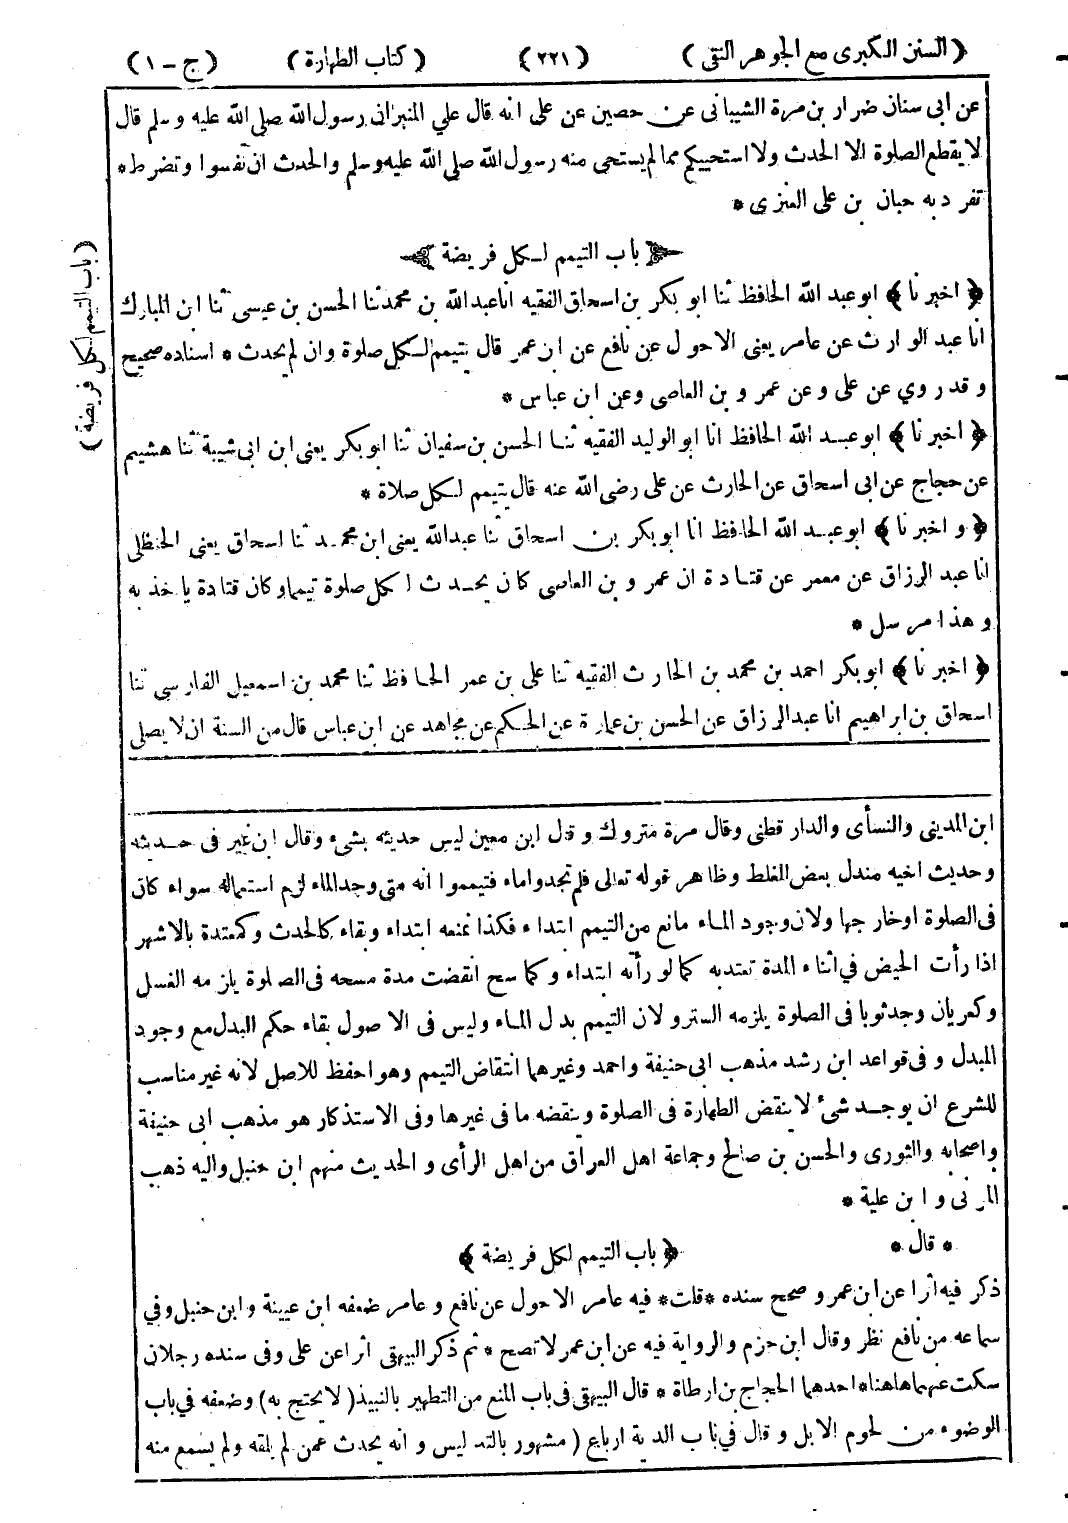 (السنن الكبرى مع الجوهر النقى) (٢٢١) (كتاب الطهارة) (ج - ١)
عن ابى سنان ضرار بن مرة الشيبانى عن حصين عن على انه قال علي المنبر ان رسول الله صلى الله عليه وسلم قال
لا يقطع الصلوة الا الحدث ولا استحييكم مما لم يستحى منه رسول الله صلى الله عليه وسلم والحدث ان تفسوا وتضرط *
تفرد به حبان بن على العنزى *
باب التيمم لكل فريضة
(باب التيمم لكل فريضة)
﴿ اخبرنا ﴾ ابو عبد الله الحافظ ثنا ابو بكر بن اسحاق الفقيه انا عبد الله بن محمد ثنا الحسن بن عيسى ثنا ابن المبارك
انا عبد الوارث عن عامر يعنى الاحول عن نافع عن ابن عمر قال يتيمم لكل صلوة وان لم يحدث * اسناده صحيح
وقد روي عن على وعن عمرو بن العاصى وعن ابن عباس *
﴿ اخبرنا ﴾ ابو عبد الله الحافظ انا ابو الوليد الفقيه ثنا الحسن بن سفيان ثنا ابو بكر يعنى ابن ابى شيبة ثنا هشيم
عن حجاج عن ابى اسحاق عن الحارث عن على رضى الله عنه قال يتيمم لكل صلاة *
﴿ واخبرنا ﴾ ابو عبد الله الحافظ انا ابو بكر بن اسحاق ثنا عبد الله يعنى ابن محمد ثنا اسحاق يعنى الحنظلى
انا عبد الرزاق عن معمر عن قتادة ان عمرو بن العاصى كان يحدث لكل صلوة تيمما وكان قتادة ياخذ به
وهذا مرسل *
﴿ اخبرنا ﴾ ابو بكر احمد بن محمد بن الحارث الفقيه ثنا على بن عمر الحافظ ثنا محمد بن اسمعيل الفارسى ثنا
اسحاق بن ابراهيم انا عبد الرزاق عن الحسن بن عمارة عن الحكم عن مجاهد عن ابن عباس قال من السنة ان لا يصلى
ابن المدينى والنسأى والدار قطنى وقال مرة متروك وقال ابن معين ليس حديثه بشىء وقال ابن نمير فى حديثه
وحديث اخيه مندل بعض الغلط وظاهر قوله تعالى فلم تجدوا ماء فتيمموا انه متى وجد الماء لزم استعماله سواء كان
فى الصلوة او خارجها ولان وجود الماء مانع من التيمم ابتداء فكذا نمنعه ابتداء وبقاء كالحدث وكمعتدة بالاشهر
اذا رأت الحيض في اثناء المدة تعتد به كما لو رأته ابتداء وكماسح انقضت مدة مسحه فى الصلوة يلزمه الغسل
وكعريان وجد ثوبا فى الصلوة يلزمه الستر ولان التيمم بدل الماء وليس فى الاصول بقاء حكم البدل مع وجود
المبدل وفى قواعد ابن رشد مذهب ابى حنيفة واحمد وغيرهما انتقاض التيمم وهو احفظ للاصل لانه غير مناسب
للشرع ان يوجد شىء لا ينقض الطهارة فى الصلوة وينقضه ما فى غيرها وفى الاستذكار هو مذهب ابى حنيفة
واصحابه والثورى والحسن بن صالح وجماعة اهل العراق من اهل الرأى والحديث منهم ابن حنبل واليه ذهب
المزنى وابن علية *
* قال * ﴿ باب التيمم لكل فريضة ﴾
ذكر فيه أثرا عن ابن عمر وصحح سنده *قلت* فيه عامر الاحول عن نافع وعامر ضعفه ابن عيينة وابن حنبل وفي
سماعه من نافع نظر وقال ابن حزم والرواية فيه عن ابن عمر لا تصح * ثم ذكر البيهقى اثرا عن على وفى سنده رجلان
سكت عنهما هاهنا * احدهما الحجاج بن ارطاة * قال البيهقى فى باب المنع من التطهير بالنبيذ (لا يحتج به) وضعفه في باب
الوضوء من لحوم الابل وقال في باب الدية ارباع (مشهور بالتدليس وانه يحدث عمن لم يلقه ولم يسمع منه